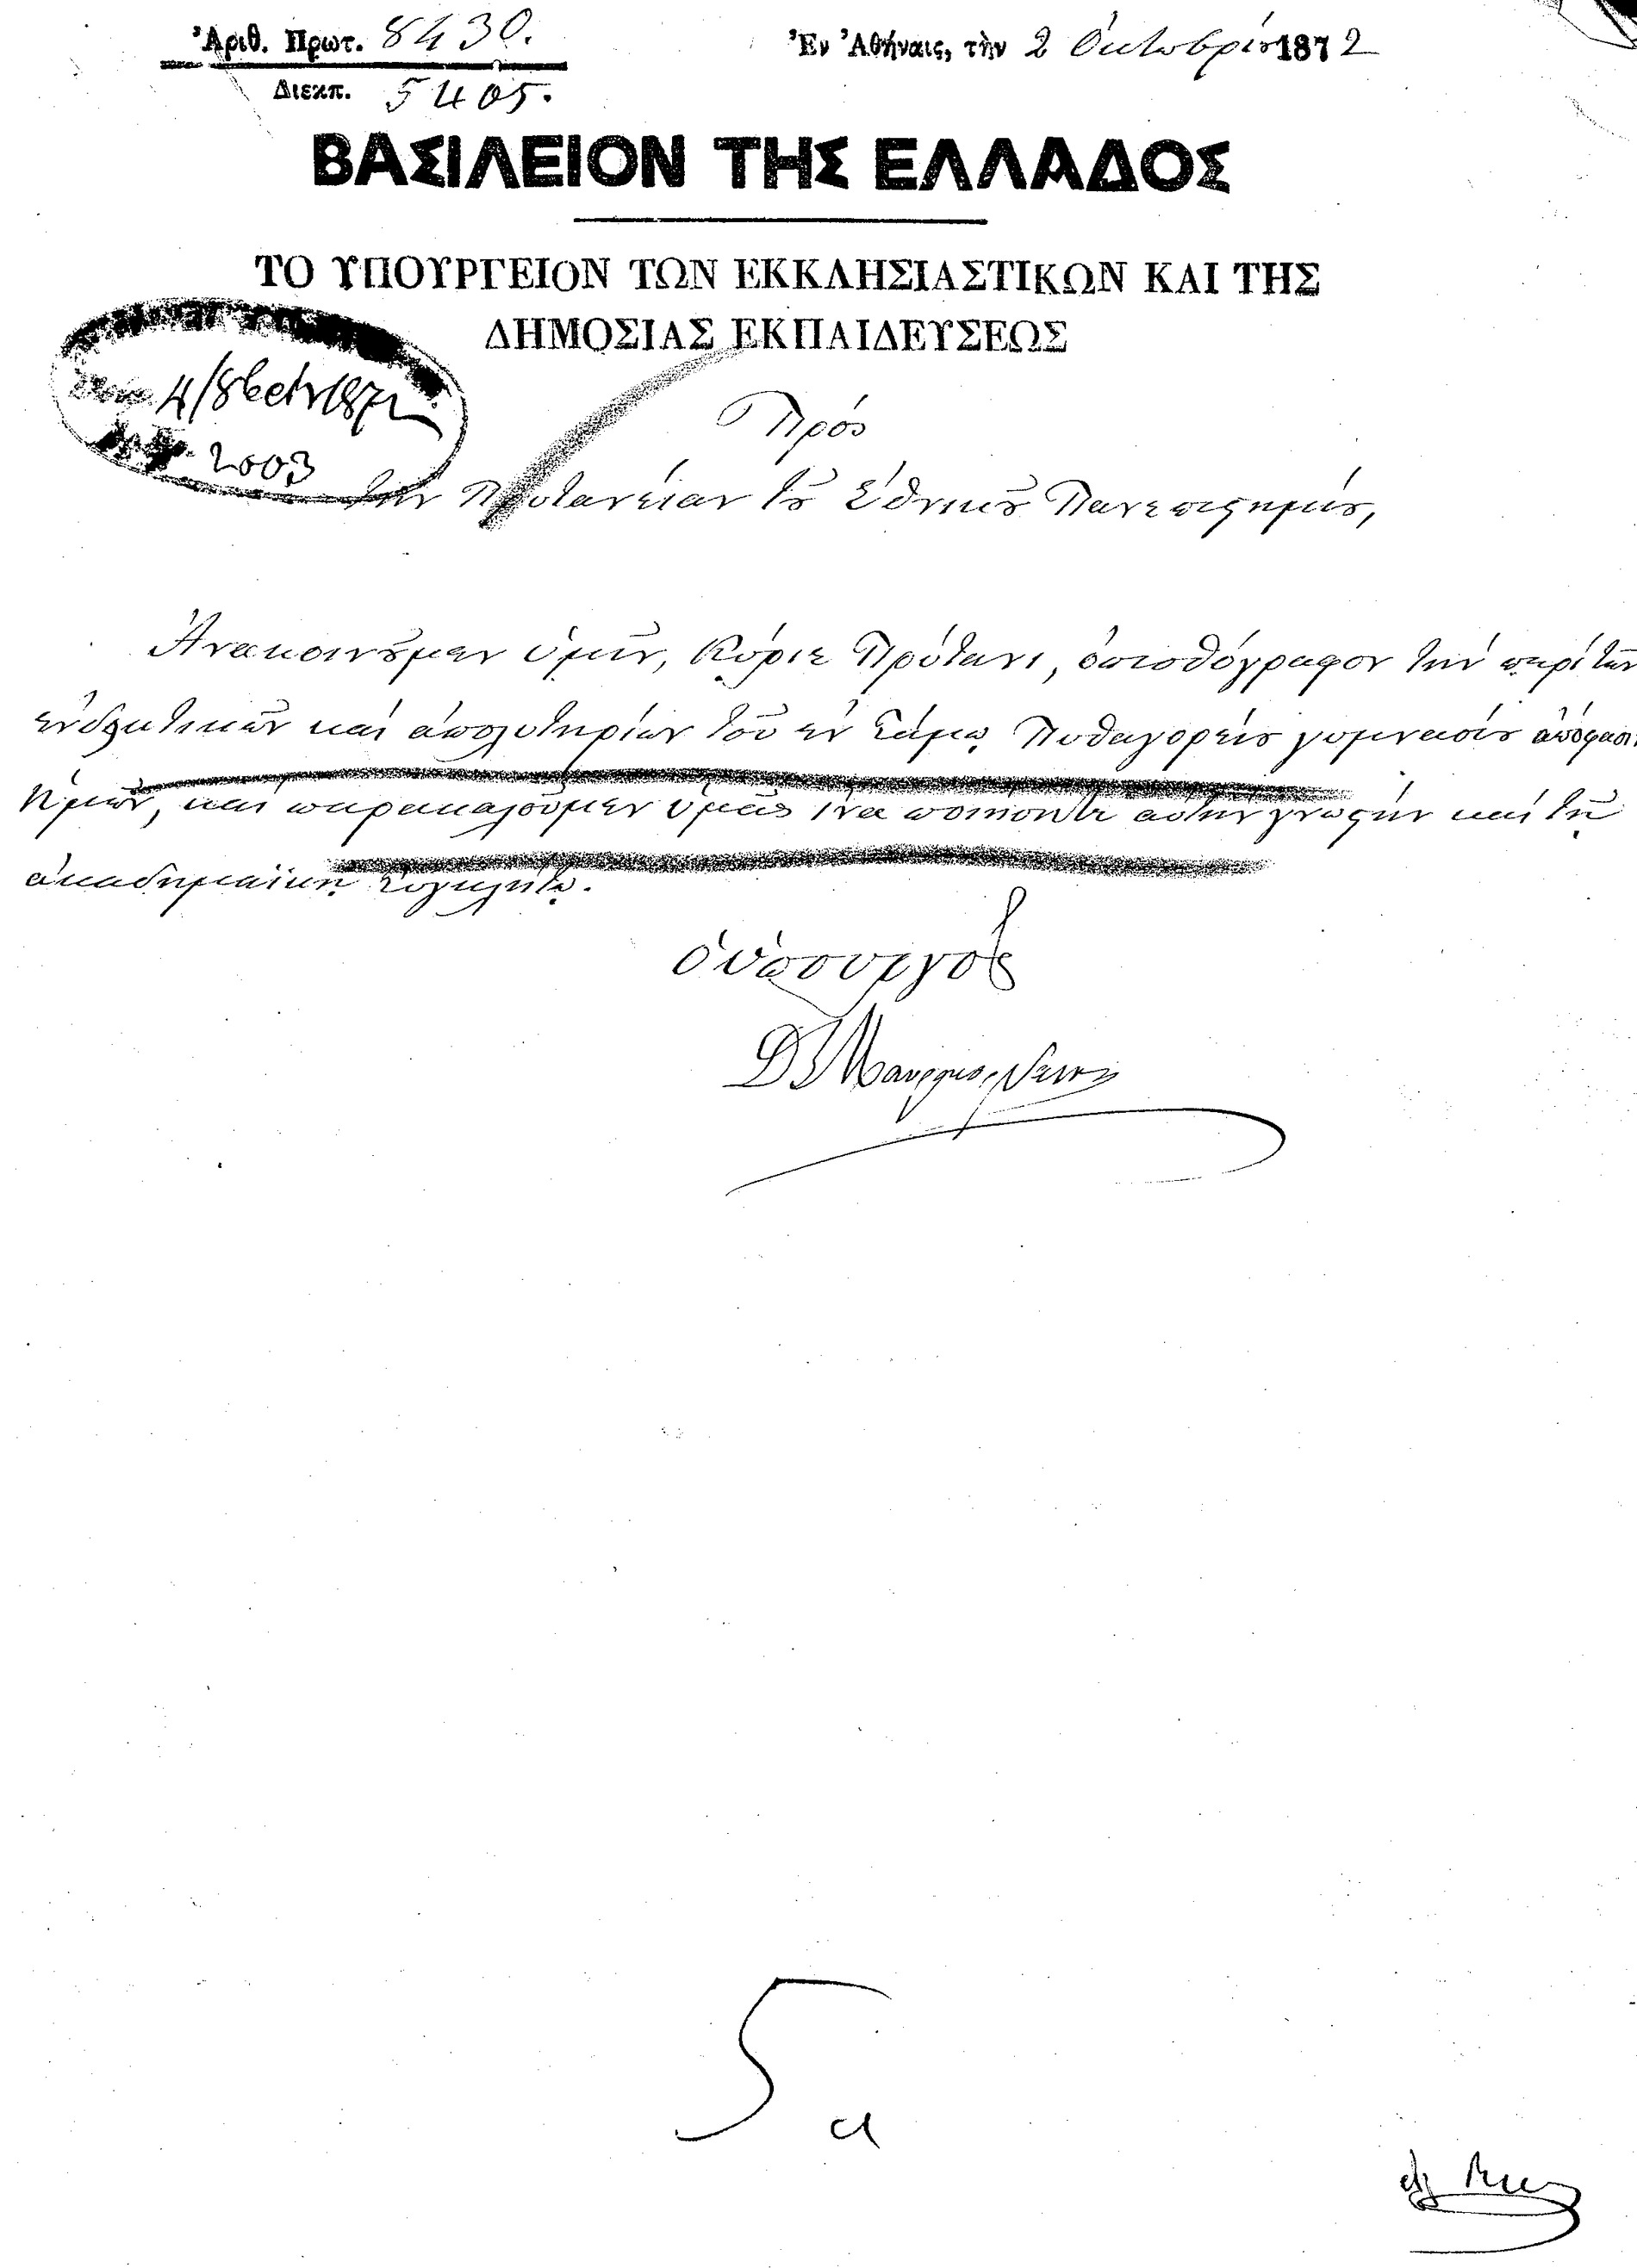 Ἀριθ. Πρωτ. 8430.
Διεκπ. 5405.
Ἐν Ἀθήναις, τὴν 2 Ὀκτωβρίου 1872
ΒΑΣΙΛΕΙΟΝ ΤΗΣ ΕΛΛΑΔΟΣ
ΤΟ ΥΠΟΥΡΓΕΙΟΝ ΤΩΝ ΕΚΚΛΗΣΙΑΣΤΙΚΩΝ ΚΑΙ ΤΗΣ
ΔΗΜΟΣΙΑΣ ΕΚΠΑΙΔΕΥΣΕΩΣ
2003
Πρὸς
τὴν Πρυτανείαν τοῦ Ἐθνικοῦ Πανεπιστημίου,
Ἀνακοινοῦμεν ὑμῖν, Κύριε Πρύτανι, ὀπισθόγραφον τὴν περὶ τῶν
ἐνδεικτικῶν καὶ ἀπολυτηρίων τοῦ ἐν Σάμῳ Πυθαγορείου γυμνασίου ἀπόφασιν
ἡμῶν, καὶ παρακαλοῦμεν ὑμᾶς ἵνα ποιήσητε αὐτὴν γνωστὴν καὶ τῇ
ἀκαδημαϊκῇ Συγκλήτῳ.
ὁ ὑπουργὸς
5
α